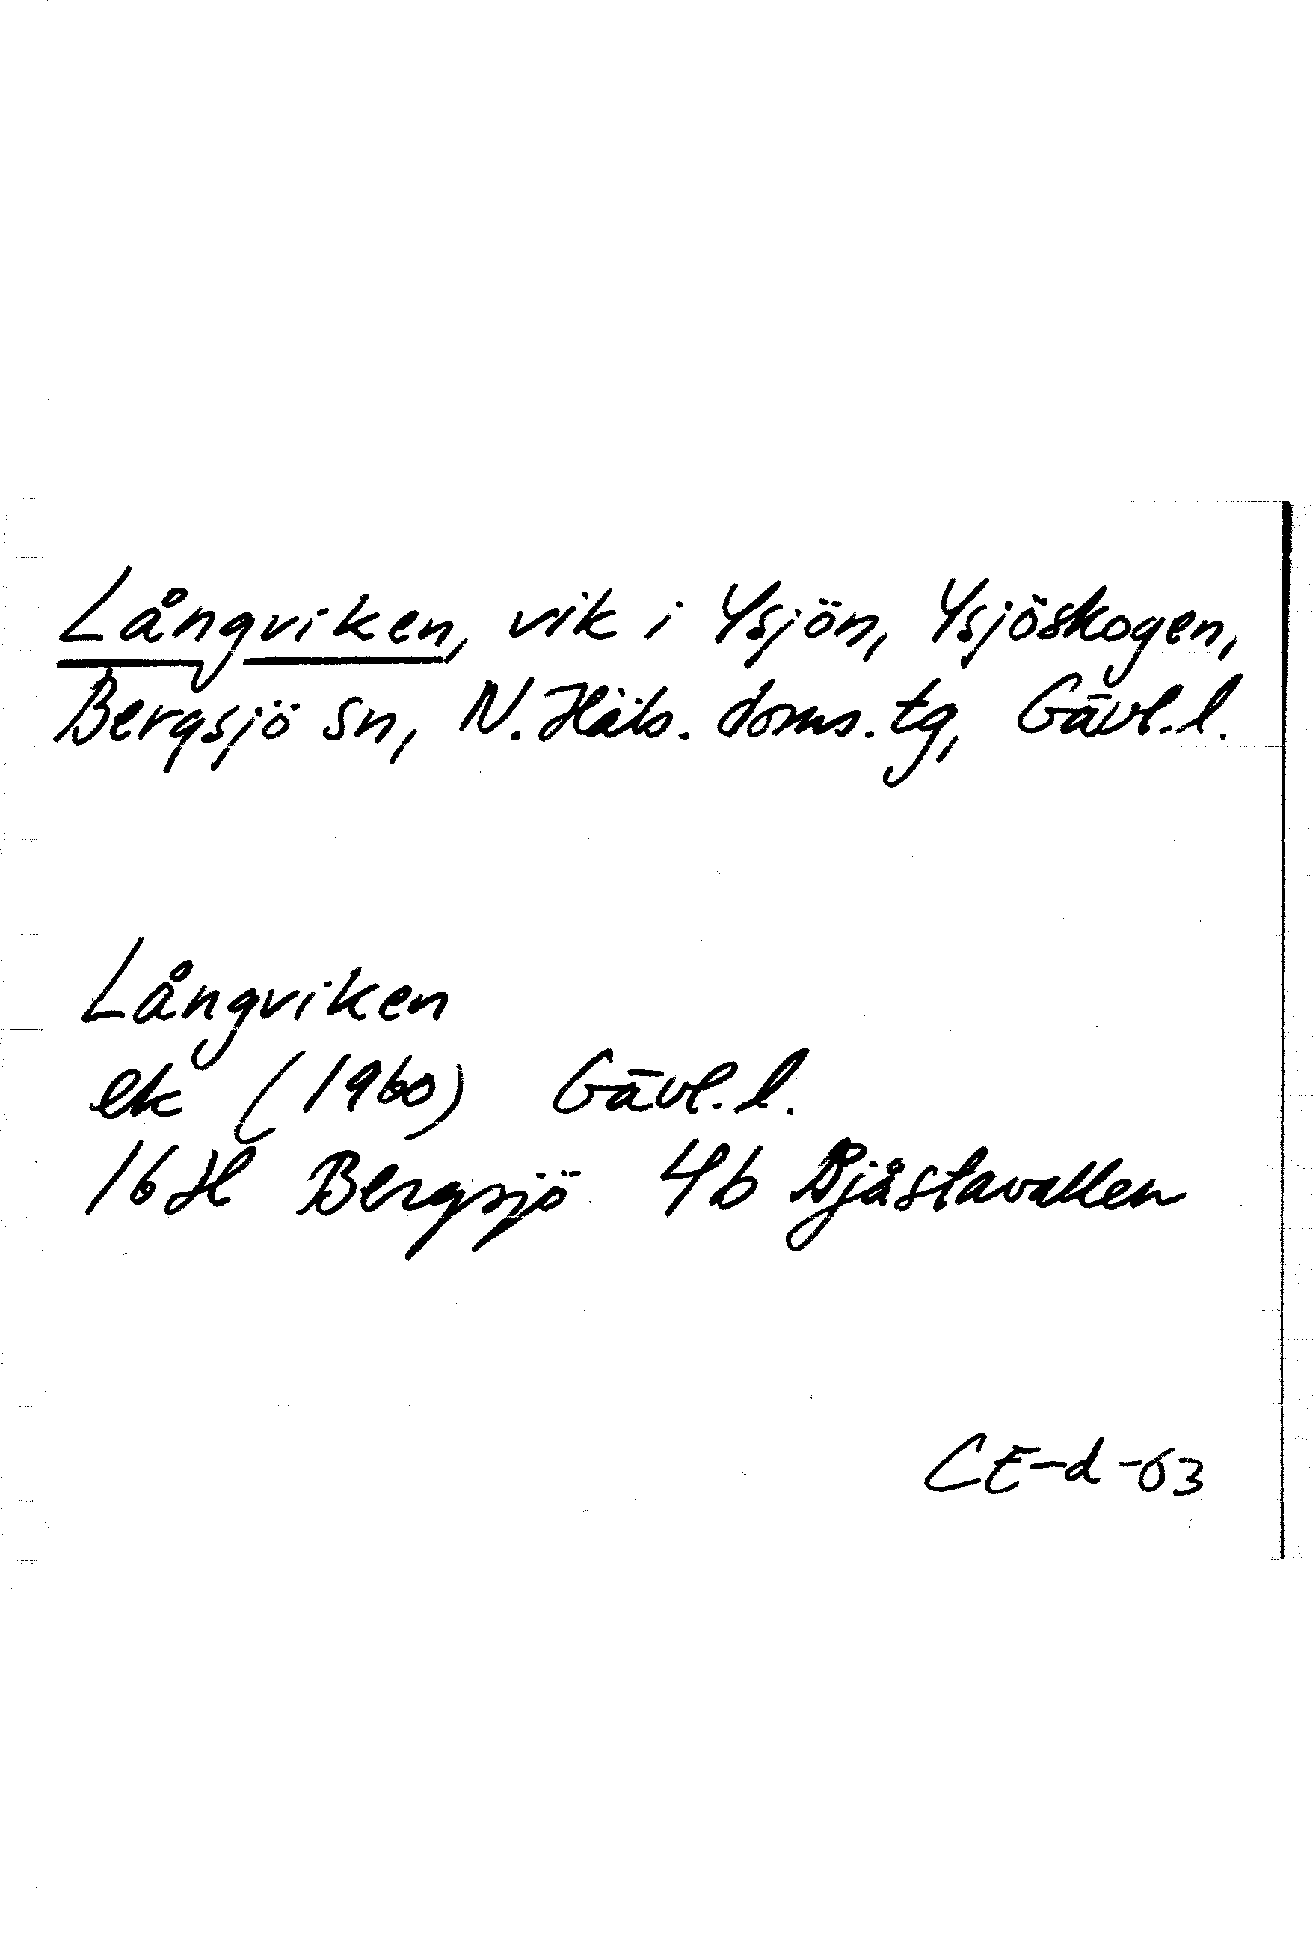 Långviken, vik i Ysjön, Ysjöskogen,
Bergsjö sn, N. Häls. doms. tg, Gävl. l.
Långviken
ek (1960) Gävl. l.
16 H Bergsjö 4b Bjåstavallen
CE-d-63